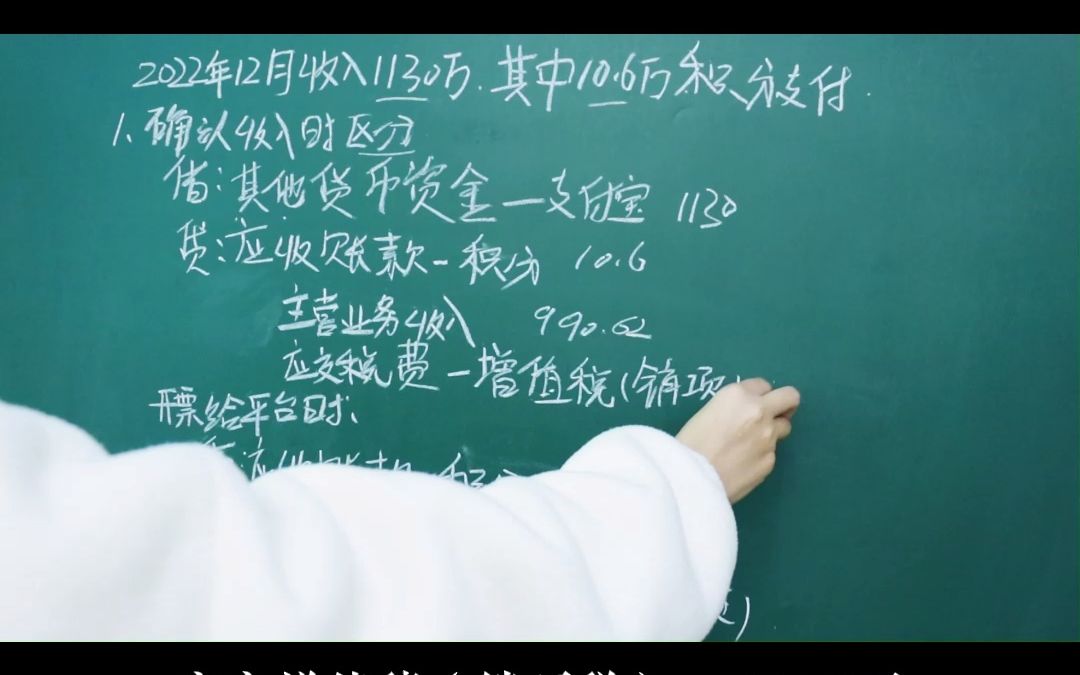 2022年12月收入1130万.其中10.6万积分支付.
1、确认收入时区分
借:其他货币资金—支付宝 1130
贷:应收账款-积分 10.6
主营业务收入 990.62
应交税费-增值税(销项
开票给平台时、
应收账款 积分
)